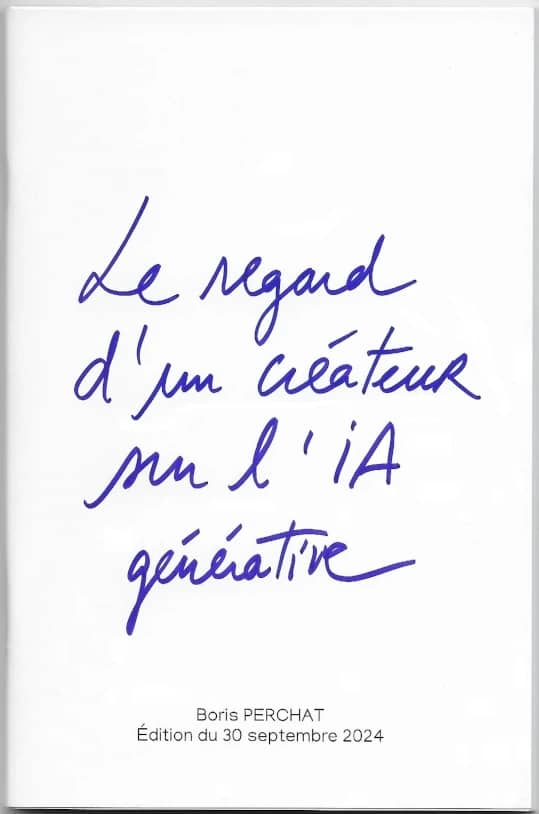 Le regard
d'un créateur
sur l'iA
générative
Boris PERCHAT
Édition du 30 septembre 2024